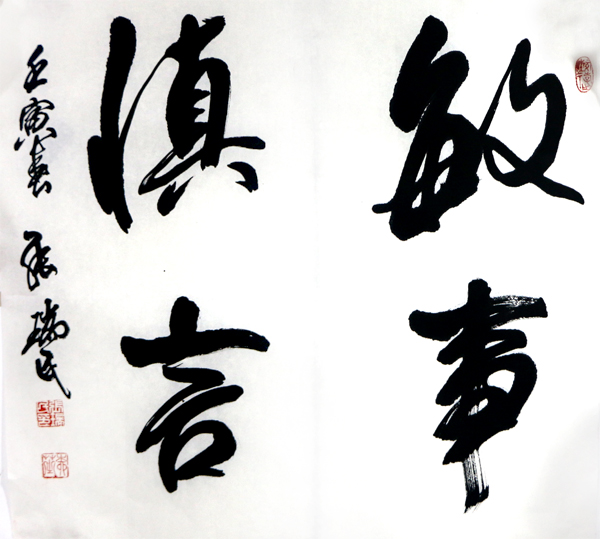 敏事
慎言
壬寅春 张瑞民